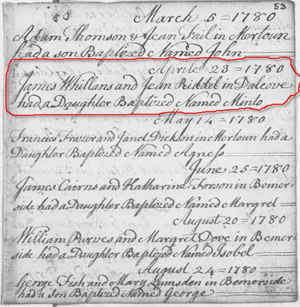 83 53
March 5 = 1780
Adam Thomson & Jean Fail in Mertoun
had a son Baptized Named John
Aprile 23 = 1780
James Whillans and Jean Rickel in Dalcove
had a Doughter Baptized Named Minto
May 14 = 1780
Francies Frazer and Janet Dickson in Mertoun had a
Daughter Baptized Named Agness
June 25 = 1780
James Cairns and Katharine Forson in Bemer-
side had a Doughter Baptized Named Margret
August 20 = 1780
William Purves and Margret Dove in Bemer
side had a Doughter Baptized Named Isobel
August 24 = 1780
George Fish and Mary Lumsden in Bemerside
had a Son Baptized Named George